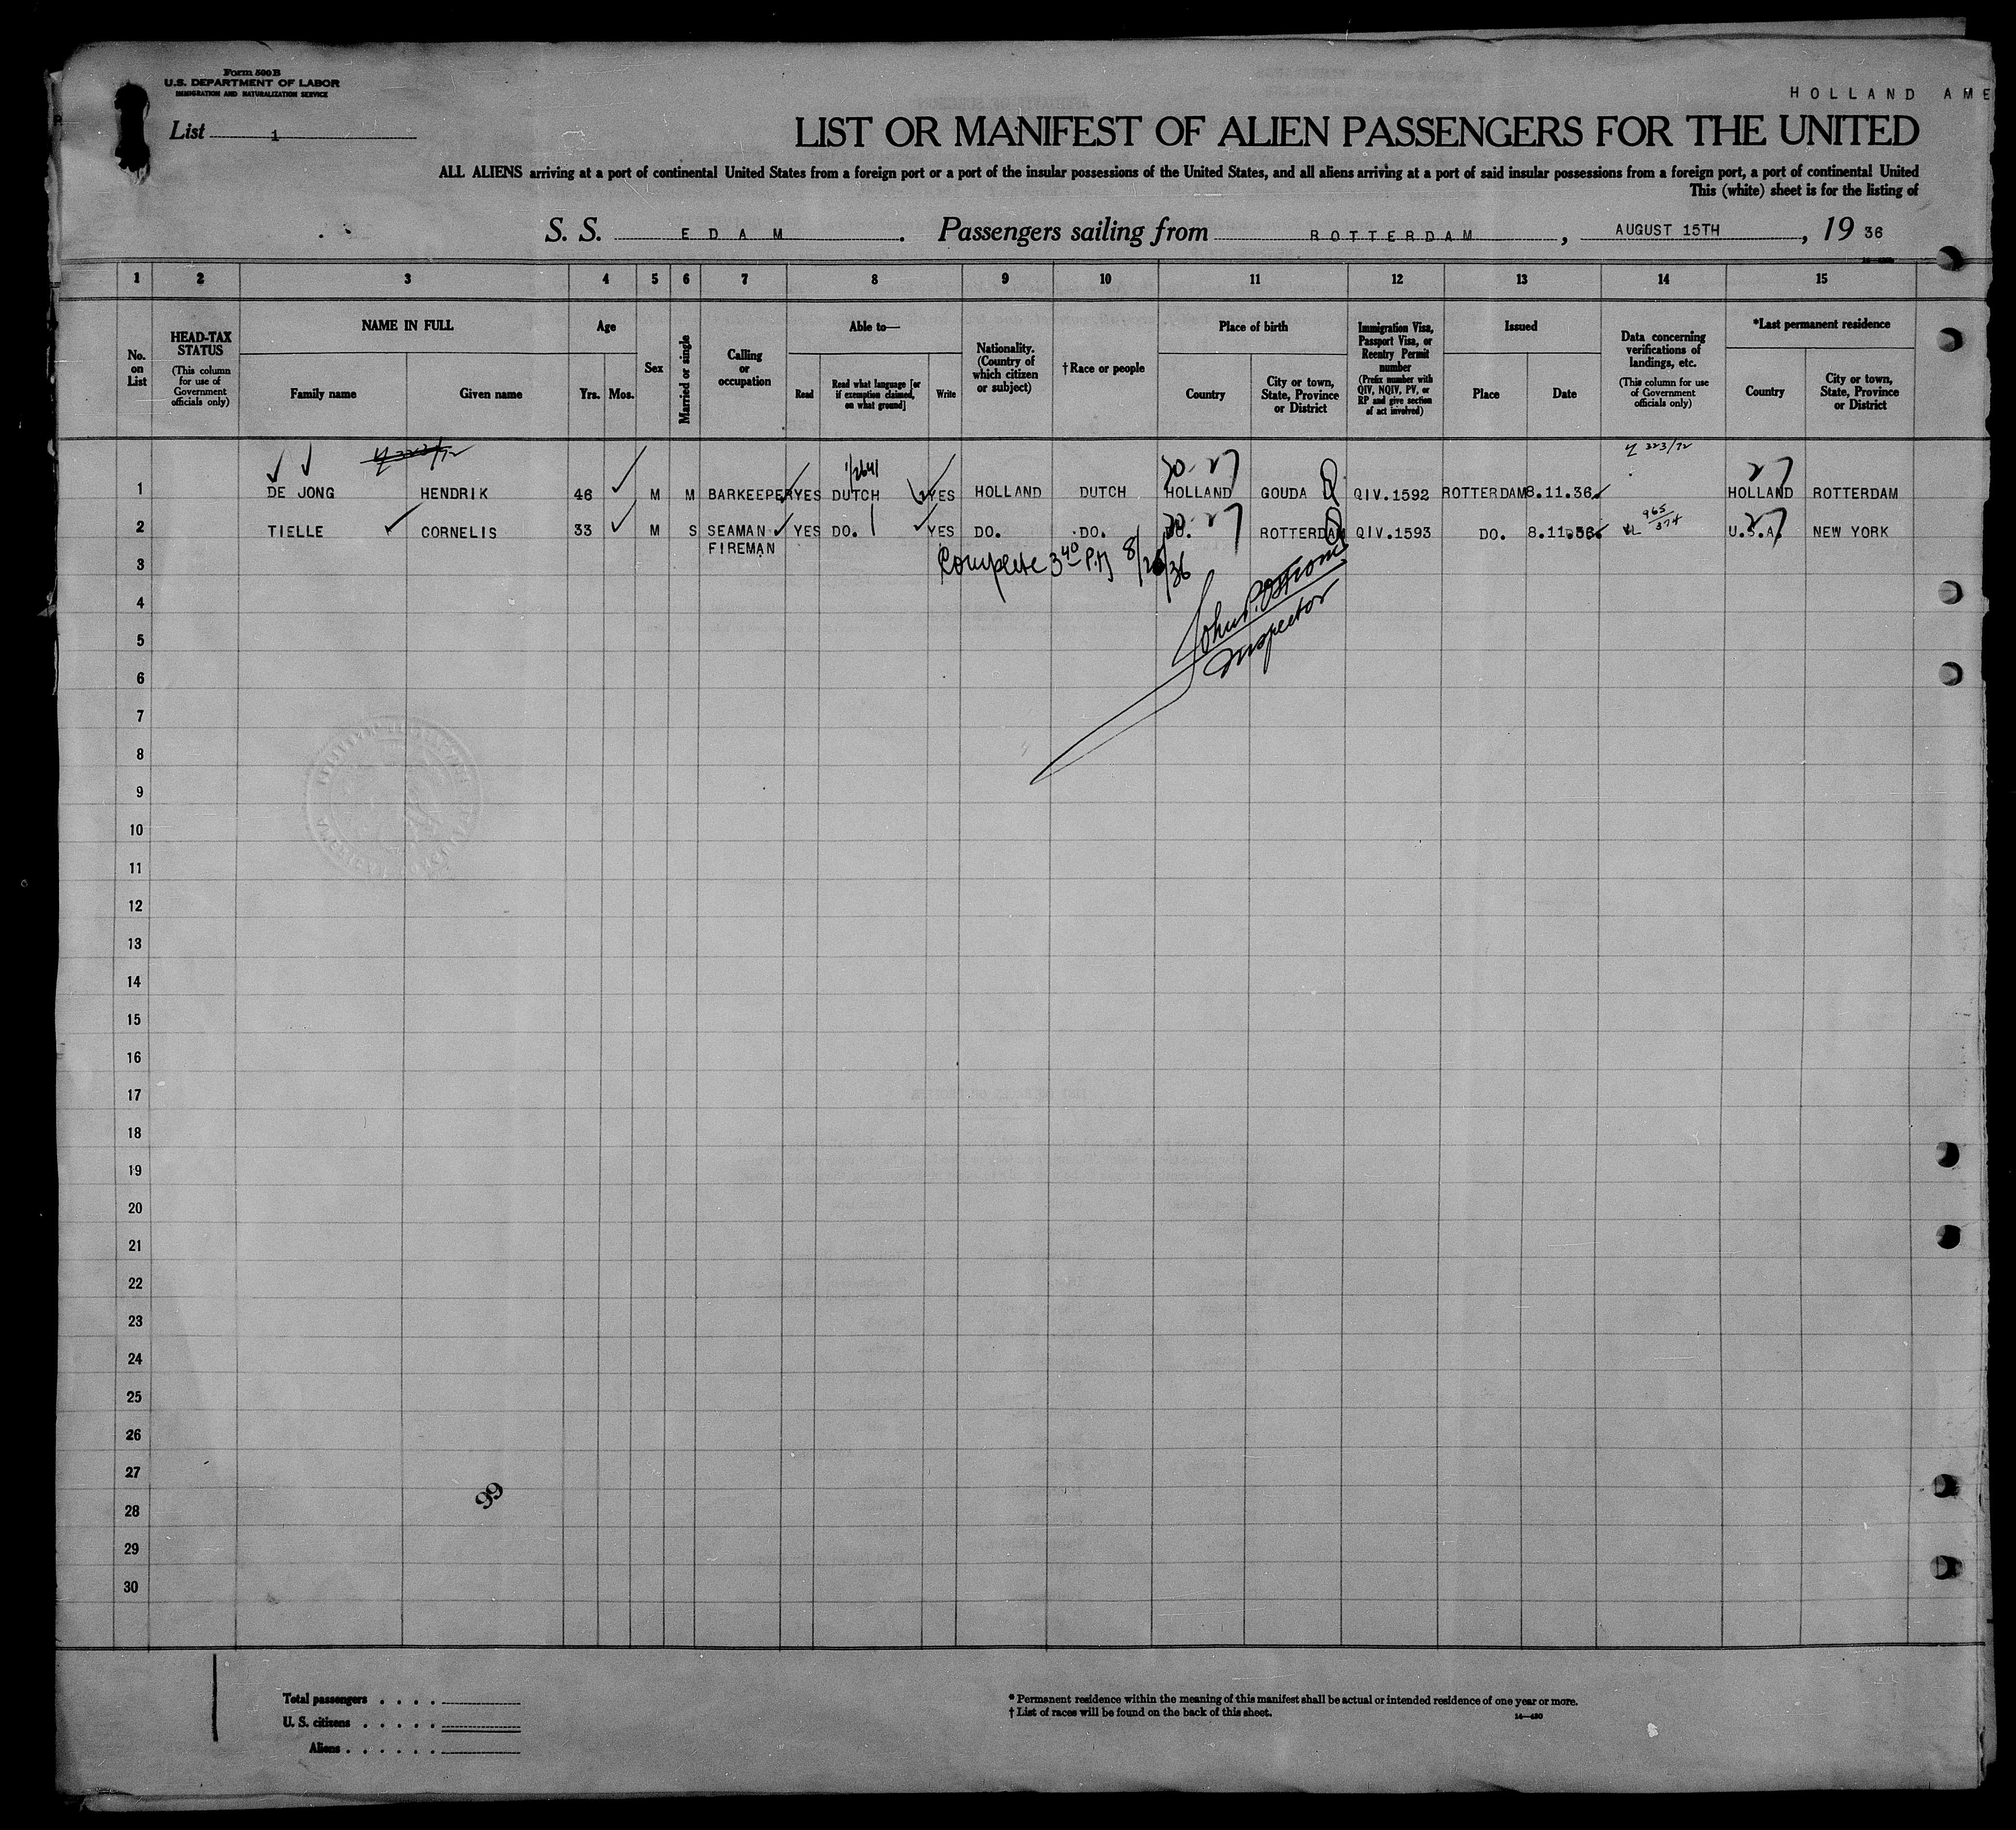 Form 500 B
U.S. DEPARTMENT OF LABOR
IMMIGRATION AND NATURALIZATION SERVICE
HOLLAND AME
List 1
LIST OR MANIFEST OF ALIEN PASSENGERS FOR THE UNITED
ALL ALIENS arriving at a port of continental United States from a foreign port or a port of the insular possessions of the United States, and all aliens arriving at a port of said insular possessions from a foreign port, a port of continental United
This (white) sheet is for the listing of
S. S. EDAM. Passengers sailing from ROTTERDAM, AUGUST 15TH, 19 36
1 2 3 4 5 6 7 8 9 10 11 12 13 14 15
No. on List
HEAD-TAX STATUS (This column for use of Government officials only)
NAME IN FULL
Family name Given name
Age
Yrs. Mos.
Sex
Married or single
Calling or occupation
Able to—
Read Read what language [or if exemption claimed, on what ground] Write
Nationality. (Country of which citizen or subject)
† Race or people
Place of birth
Country City or town, State, Province or District
Immigration Visa, Passport Visa, or Reentry Permit number (Prefix number with QIV, NQIV, PV, or RP and give section of act involved)
Issued
Place Date
Data concerning verifications of landings, etc. (This column for use of Government officials only)
*Last permanent residence
Country City or town, State, Province or District
223/72
1 DE JONG HENDRIK 46 M M BARKEEPER YES DUTCH YES HOLLAND DUTCH HOLLAND GOUDA QIV.1592 ROTTERDAM 8.11.36 HOLLAND ROTTERDAM
965/374
2 TIELLE CORNELIS 33 M S SEAMAN YES DO. YES DO. DO. DO. ROTTERDAM QIV.1593 DO. 8.11.36 U.S.A. NEW YORK
FIREMAN
Complete 3 40 P.M
3
John P. Ostrom
Inspector
4
5
6
7
8
9
10
11
12
13
14
15
16
17
18
19
20
21
22
23
24
25
26
27
99
28
29
30
Total passengers . . . .
U. S. citizens . . . . .
Aliens . . . . . .
* Permanent residence within the meaning of this manifest shall be actual or intended residence of one year or more.
† List of races will be found on the back of this sheet.
14—430